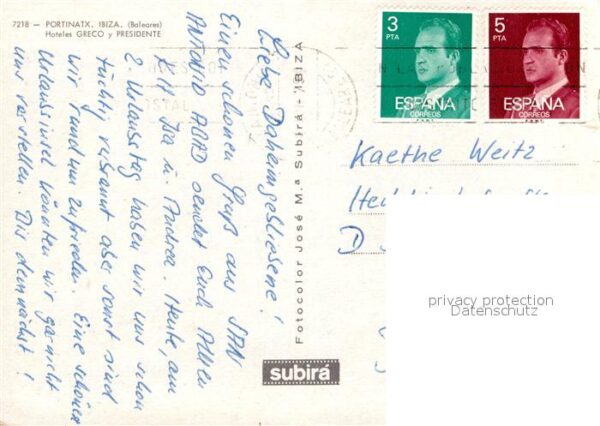 7218 — PORTINATX. IBIZA. (Baleares)
Hoteles GRECO y PRESIDENTE
Liebe Daheimgebliebene!
Einen schönen Gruß aus SAN
ANTONIO ABAD sendet Euch Allen
u. Andrea. Heute, am
2. Urlaubstag haben wir uns schon
tüchtig verbrannt aber sonst sind
wir rundum zufrieden. Eine schönere
Urlaubsinsel könnten wir gar nicht
uns vorstellen. Bis demnächst!
Fotocolor José M.ª Subirá - IBIZA
subirá
3
PTA
ESPAÑA
CORREOS
5
PTA
ESPAÑA
CORREOS
Kaethe Weitz
D
privacy protection
Datenschutz